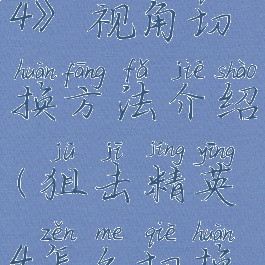 4》视角切
huàn fāng fǎ jiè shào
换方法介绍
jū jī jīng yīng
（狙击精英
zěn me qiē huàn
4怎么切换